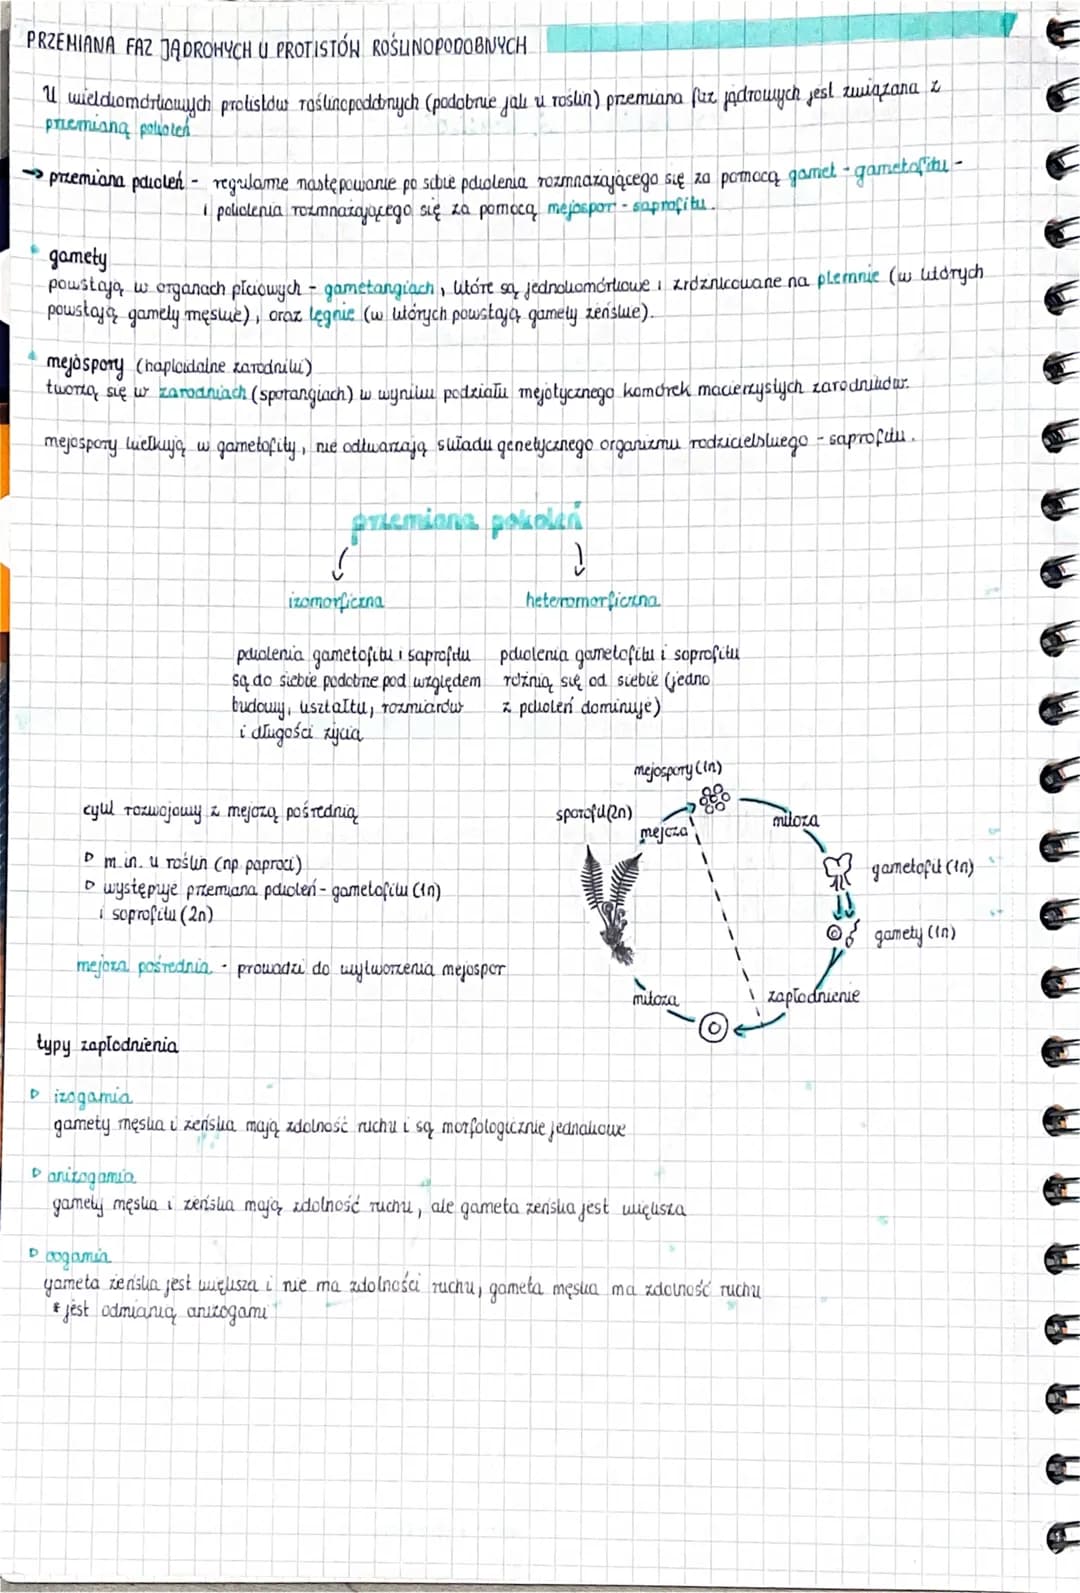 PRZEMIANA FAZ JĄDROWYCH U PROTISTÓW ROŚLINOPODOBNYCH
U wielokomórkowych protistów roślinopodobnych (podobnie jak u roślin) przemiana faz jądrowych jest związana z
przemianą pokoleń
→ przemiana pokoleń - regularne następowanie po sobie pokolenia rozmnażającego się za pomocą gamet - gametofitu -
i pokolenia rozmnażającego się za pomocą mejospor - saprofitu.
gamety
powstają w organach płciowych - gametangiach, które są jednokomórkowe i zróżnicowane na plemnie (w których
powstają gamety męskie), oraz lęgnie (w których powstają gamety żeńskie).
mejospory (haploidalne zarodniki)
tworzą się w zarodniach (sporangiach) w wyniku podziału mejotycznego komórek macierzystych zarodników.
mejospory kiełkują w gametofity, nie odtwarzają składu genetycznego organizmu rodzicielskiego - saprofitu.
przemiana pokoleń
izomorficzna
heteromorficzna
pokolenia gametofitu i saprofitu
są do siebie podobne pod względem
budowy, kształtu, rozmiarów
i długości życia
pokolenia gametofitu i soprofitu
różnią się od siebie (jedno
z pokoleń dominuje)
cykl rozwojowy z mejozą pośrednią
▷ m.in. u roślin (np. paproci)
▷ występuje przemiana pokoleń - gametofitu (1n)
i soprofitu (2n)
mejoza pośrednia - prowadzi do wytworzenia mejospor
mejospory (1n)
sporofit (2n)
mejoza
mitoza
gametofit (1n)
gamety (1n)
zapłodnienie
mitoza
typy zapłodnienia
▷ izogamia
gamety męska i żeńska mają zdolność ruchu i są morfologicznie jednakowe
▷ anizogamia
gamety męska i żeńska mają zdolność ruchu, ale gameta żeńska jest większa
▷ oogamia
gameta żeńska jest większa i nie ma zdolności ruchu, gameta męska ma zdolność ruchu
* jest odmianą anizogami